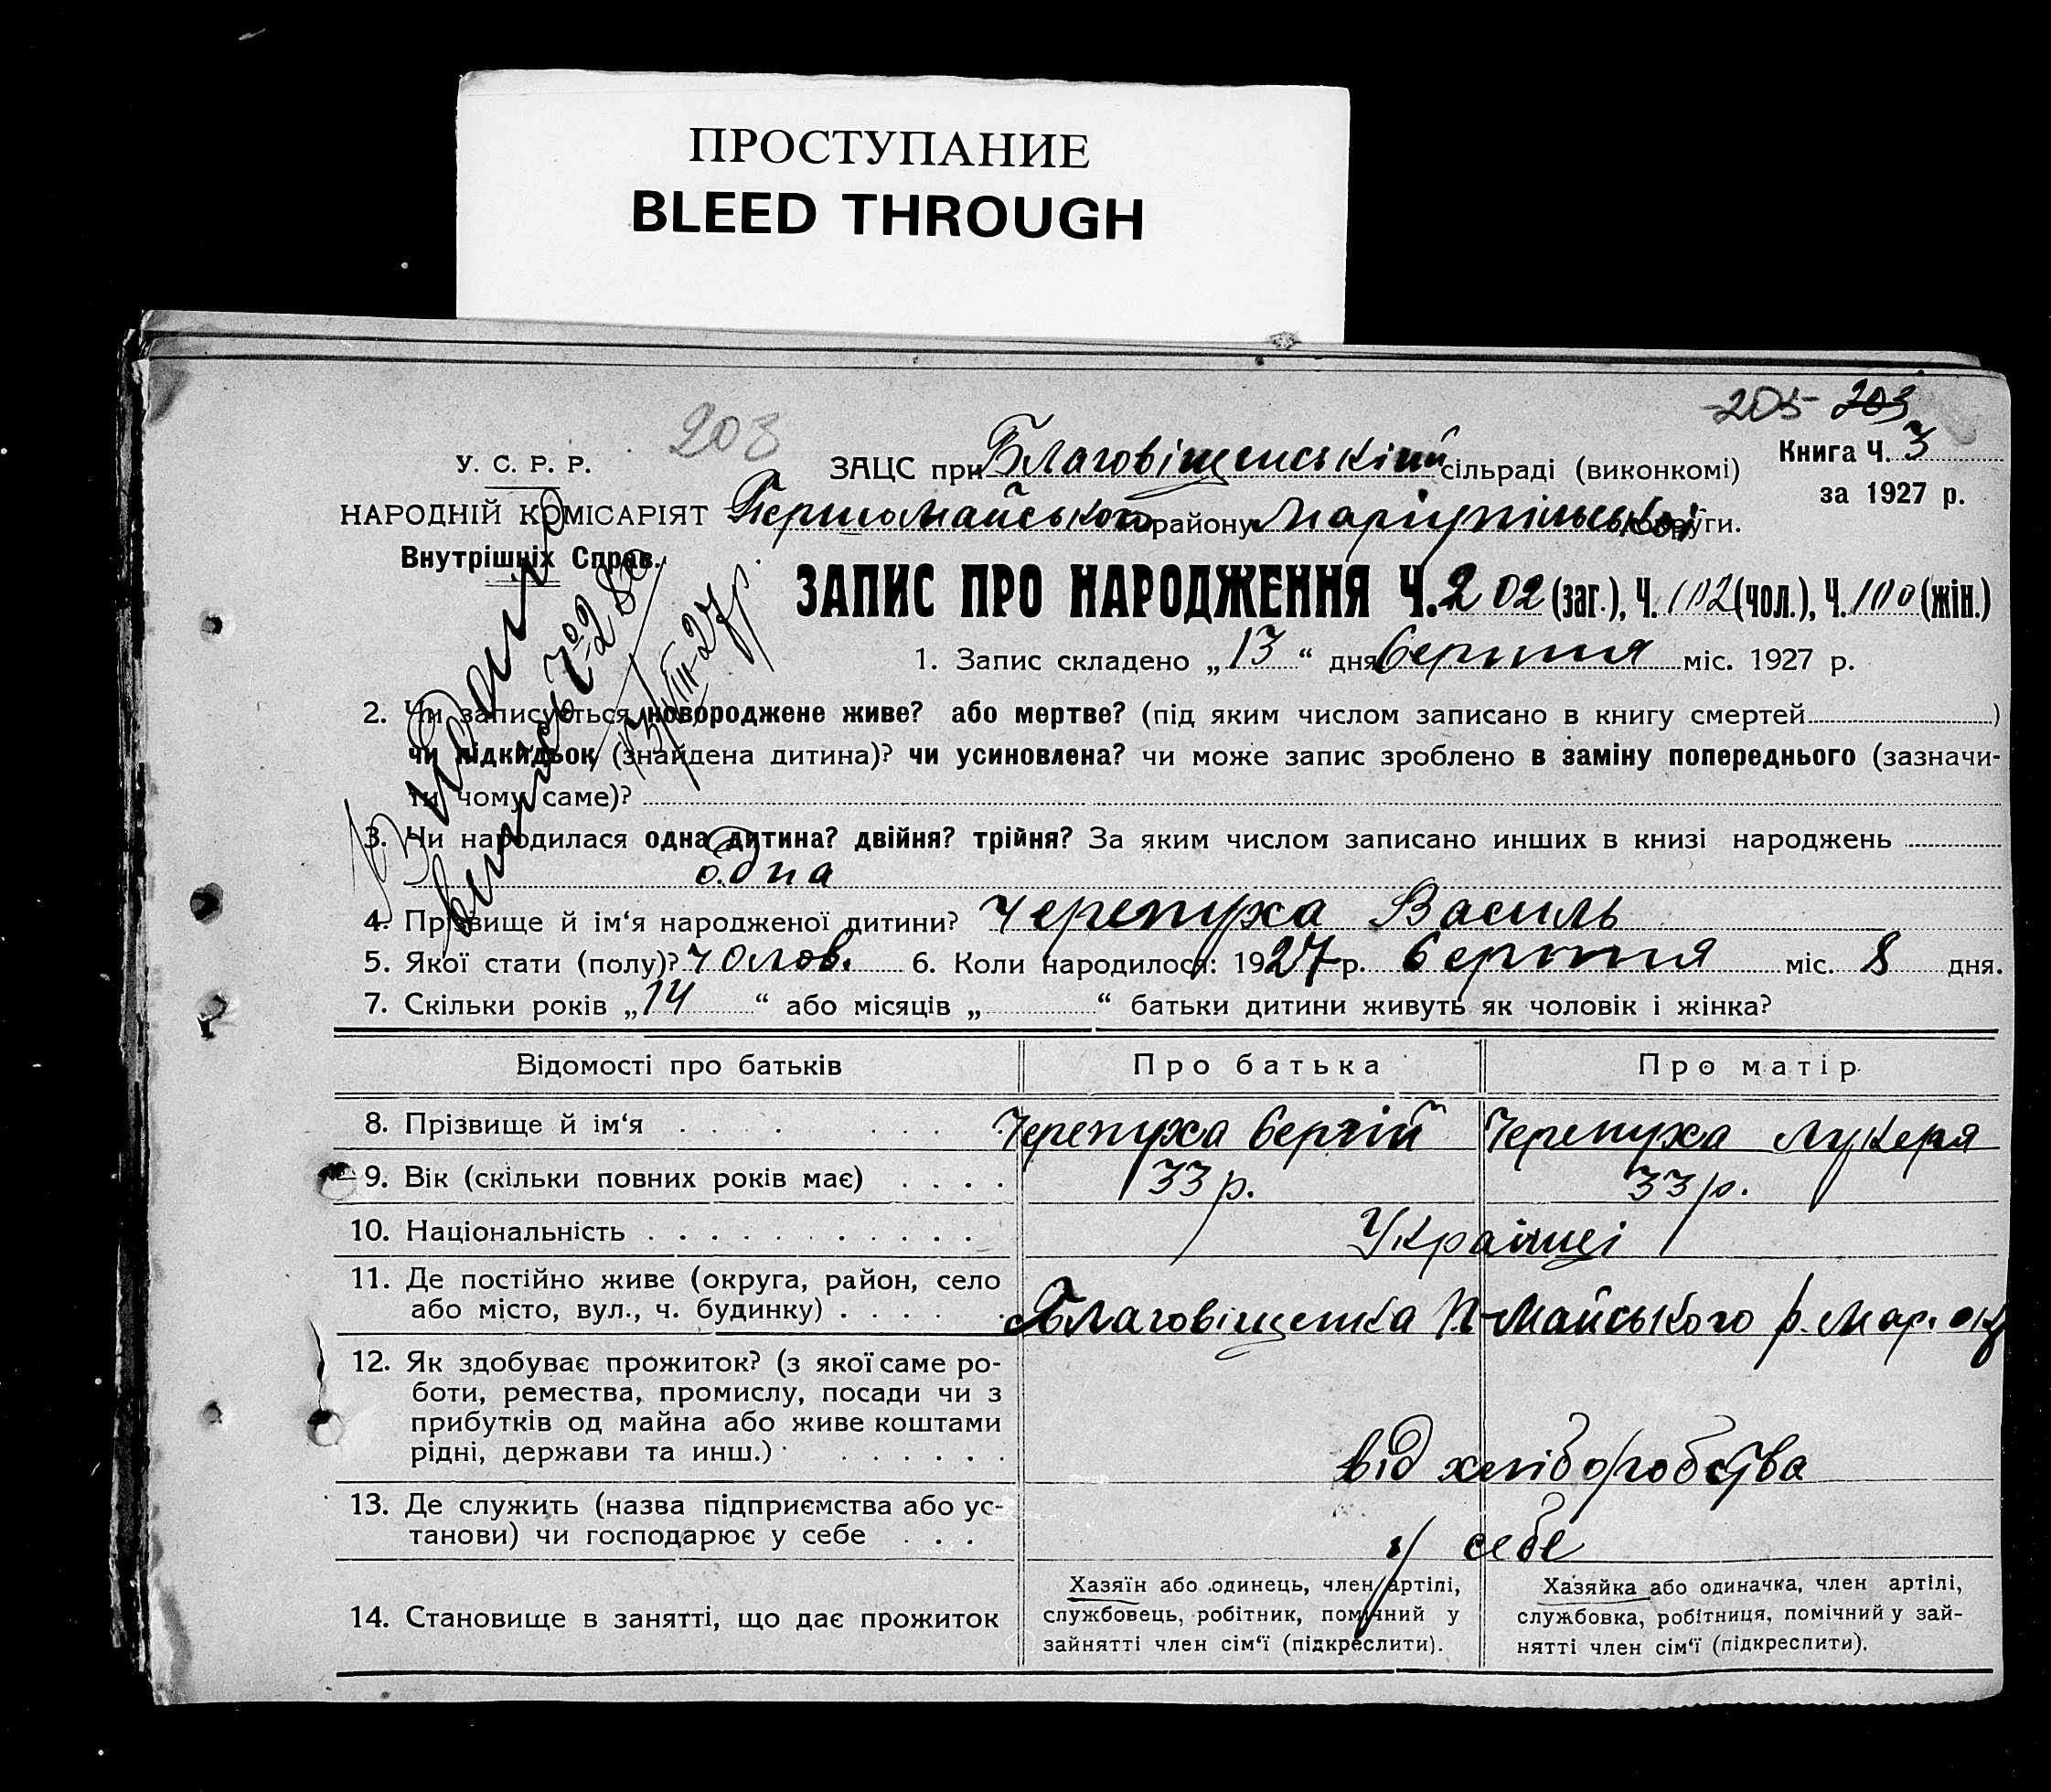 ПРОСТУПАНИЕ
BLEED THROUGH
205 203
203
У. С. Р. Р.
НАРОДНІЙ КОМІСАРІЯТ
Внутрішніх Справ.
ЗАЦС при Благовіщенській сільраді (виконкомі)
Книга Ч. 3
за 1927 р.
Першомайського району Маріупільської округи.
ЗАПИС ПРО НАРОДЖЕННЯ Ч. 202 (заг.), Ч. 102 (чол.), Ч. 100 (жін.)
Видано
виписъ № 280
13/VIII-27р.
1. Запис складено „13“ дня Серпня міс. 1927 р.
2. Чи записується новороджене живе? або мертве? (під яким числом записано в книгу смертей )
чи підкидьок (знайдена дитина)? чи усиновлена? чи може запис зроблено в заміну попереднього (зазначи-
ти чому саме)?
3. Чи народилася одна дитина? двійня? трійня? За яким числом записано инших в книзі народжень
одна
4. Прізвище й ім‘я народженої дитини? Черепуха Василь
5. Якої стати (полу)? чолов. 6. Коли народилося: 1927 р. Серпня міс. 8 дня.
7. Скільки років „14“ або місяців „ “ батьки дитини живуть як чоловік і жінка?
Відомості про батьків Про батька Про матір
8. Прізвище й ім‘я Черепуха Сергій Черепуха Лукеря
9. Вік (скільки повних років має) 33 р. 33 р.
10. Національність Українці
11. Де постійно живе (округа, район, село
або місто, вул., ч. будинку) Благовіщенка П-Майського р. Мар. окр
12. Як здобуває прожиток? (з якої саме ро-
боти, ремества, промислу, посади чи з
прибутків од майна або живе коштами
рідні, держави та инш.)
від хліборобства
13. Де служить (назва підприємства або ус-
танови) чи господарює у себе
у себе
14. Становище в занятті, що дає прожиток
Хазяїн або одинець, член артілі,
службовець, робітник, помічний у
зайнятті член сім‘ї (підкреслити).
Хазяйка або одиначка, член артілі,
службовка, робітниця, помічний у зай-
нятті член сім‘ї (підкреслити).